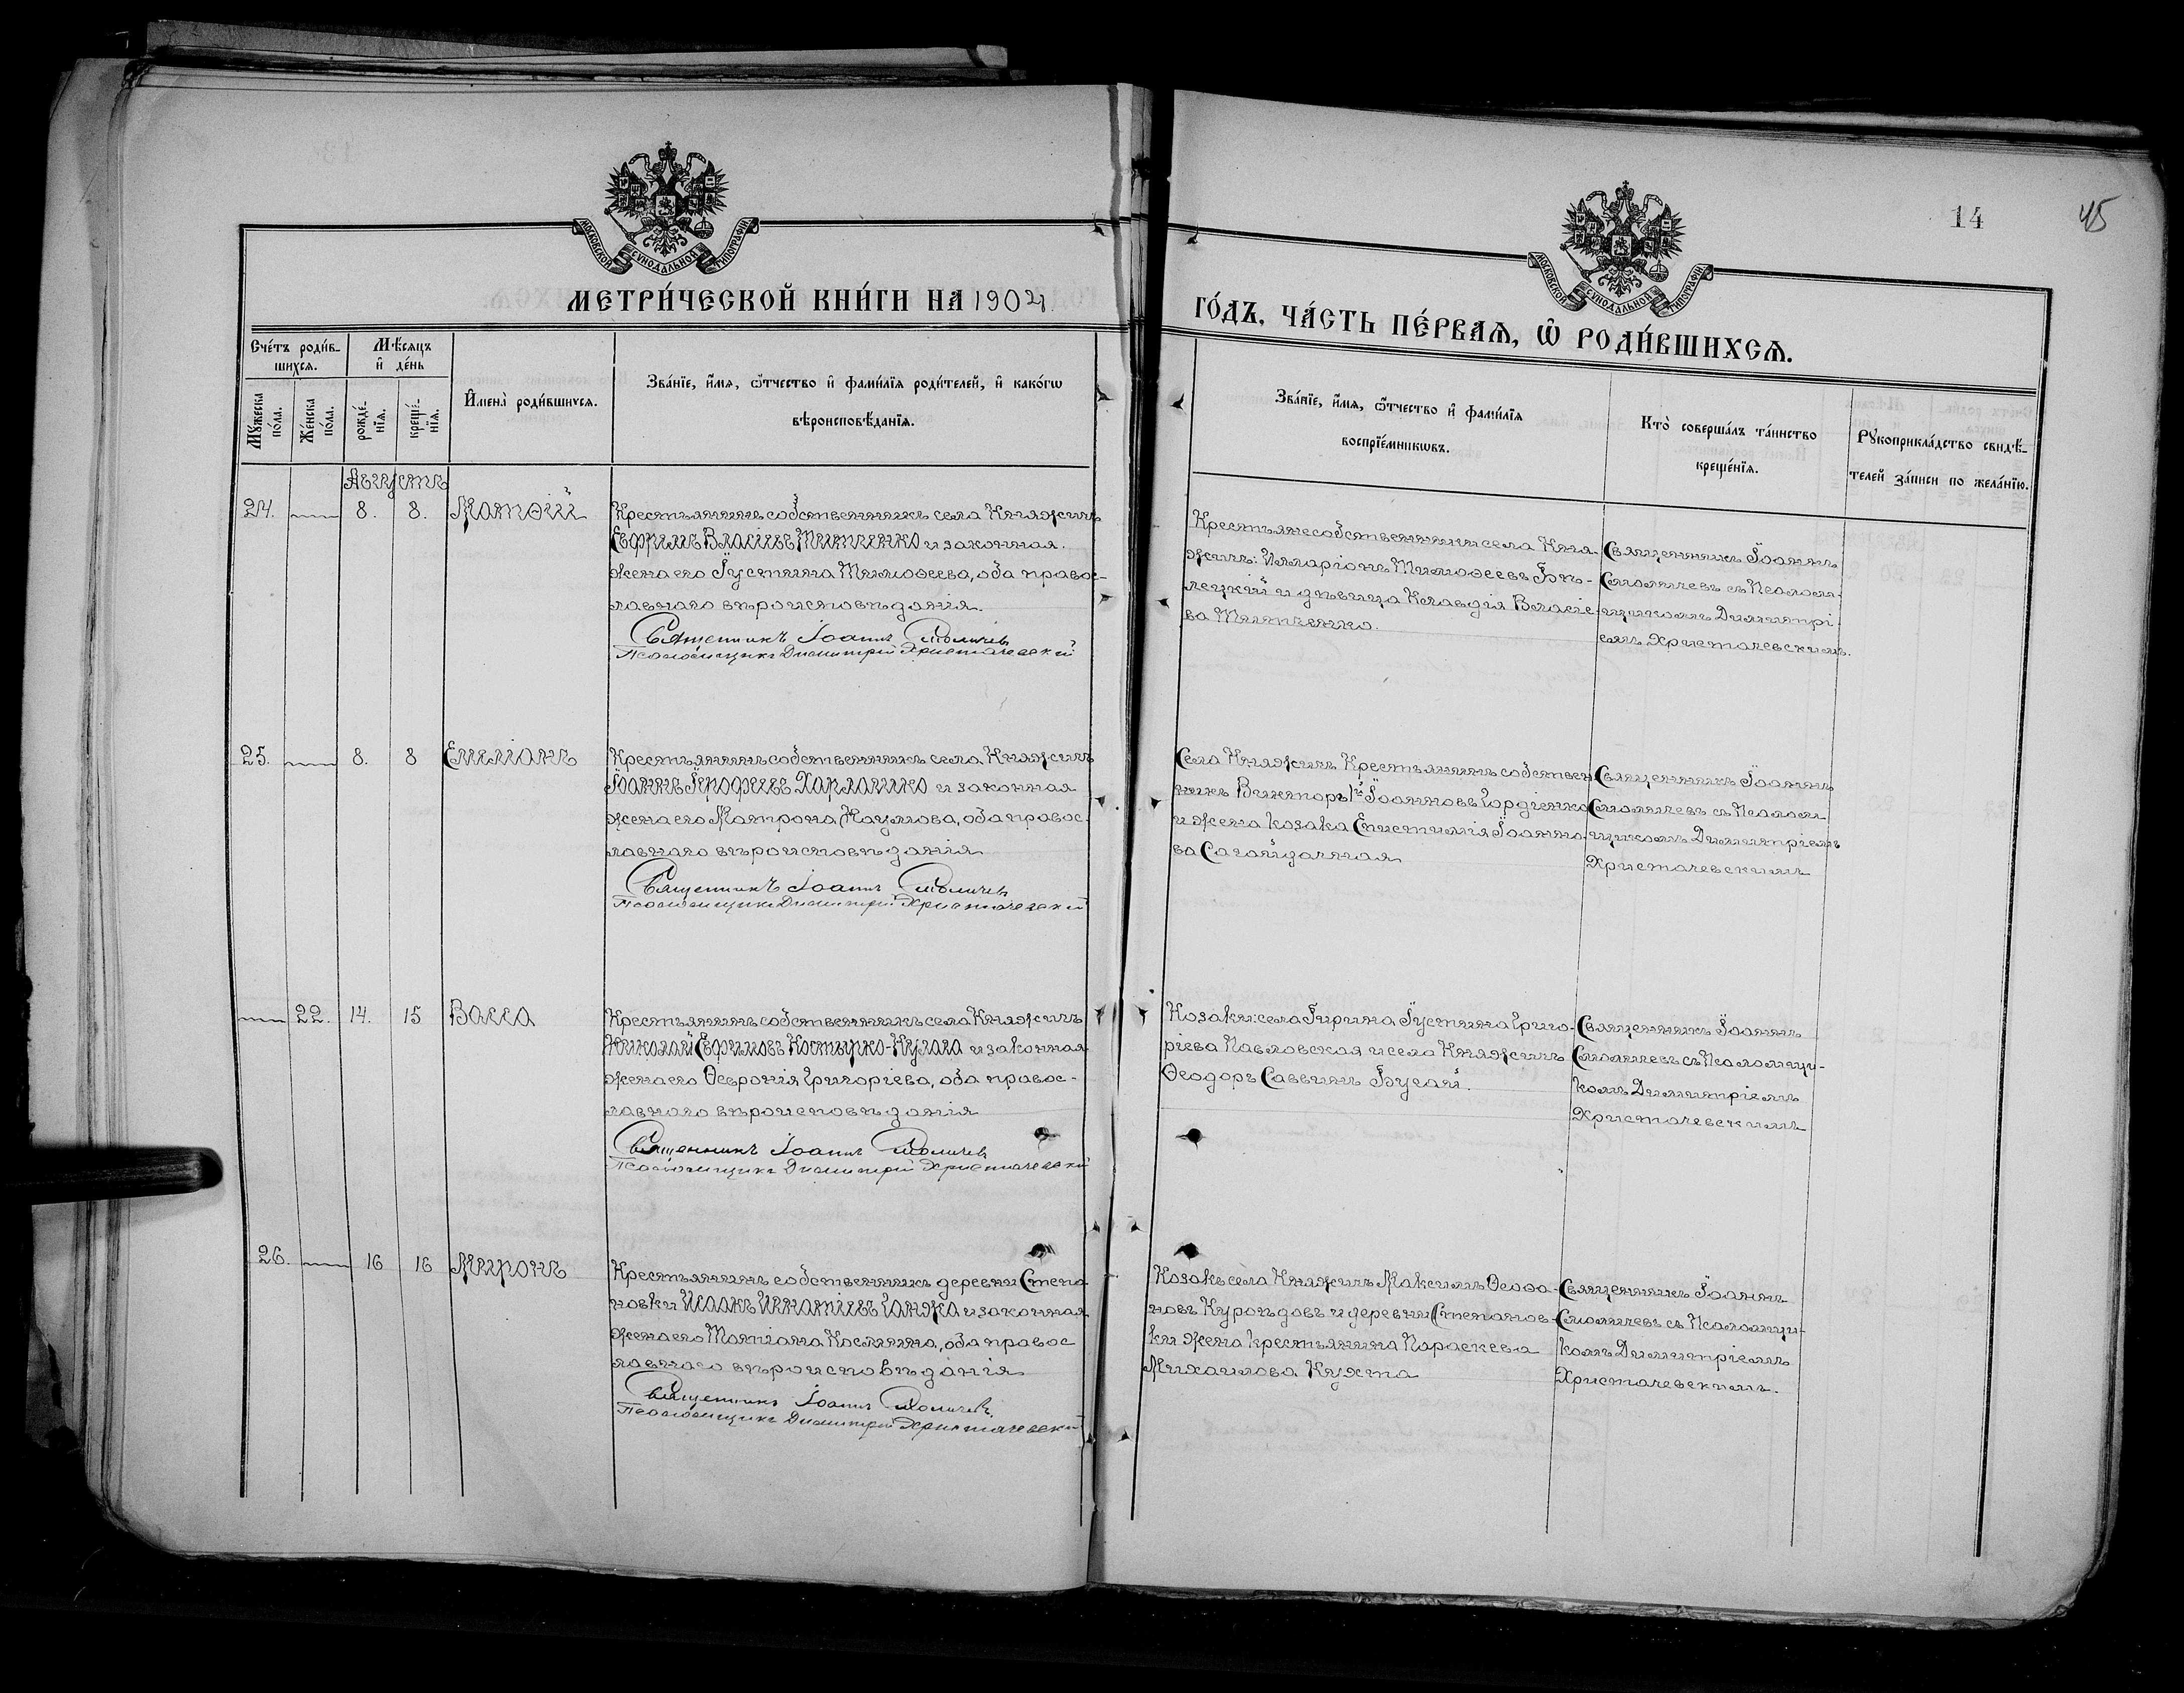 14
45
МОСКОВСКОЙ СѴНОДАЛЬНОЙ ТИПОГРАФІИ
МОСКОВСКОЙ СѴНОДАЛЬНОЙ ТИПОГРАФІИ
МЕТРИ́ЧЕСКОЙ КНИ́ГИ НА 1904
ГО́ДЪ, ЧА́СТЬ ПЕ́РВАѦ, Ѡ РОДИ́ВШИХСѦ.
Сче́тъ роди́в-
шихсѧ.
Мѣ́сѧцъ
и҆ де́нь
Мꙋ́жеска по́ла.
Же́нска по́ла.
рожде́-
нїѧ.
креще́-
нїѧ.
И҆мена̀ роди́вшихсѧ.
Зва́нїе, и҆́мѧ, ѻ҆́тчество и҆ фами́лїѧ роди́телей, и҆ како́гѡ
вѣроисповѣ́данїѧ.
Зва́нїе, и҆́мѧ, ѻ҆́тчество и҆ фами́лїѧ
воспрїе́мникѡвъ.
Кто̀ соверша́лъ та́инство
креще́нїѧ.
Рꙋкоприкла́дство свидѣ́-
телей за́писи по жела́нїю.
Августъ
24.
8.
8.
Матѳій
Крестьянинъ собственникъ села Княжичъ
Ефримъ Власіевъ Титченко и законная
жена его Іустина Тимоѳеева, оба правос-
лавнаго вѣроисповѣданія.
Священникъ Іоаннъ Смоличев
Псаломщикъ Димитрій Христачевскій
Крестьяне собственники села Кня-
жичъ: Илларіонъ Тимоѳеевъ Бѣ-
лецкій и дѣвица Клавдія Власіе-
ва Титченко.
Священникъ Іоаннъ
Смоличевъ съ Псалом-
щикомъ Димитрі-
емъ Христачевскимъ.
25.
8.
8
Емеліанъ
Крестьянинъ собственникъ села Княжичъ
Іоаннъ Іерофеевъ Харлашко и законная
жена его Матрона Наумова, оба правос-
лавнаго вѣроисповѣданія
Священникъ Іоаннъ Смоличевъ
Псаломщикъ Димитрій Христачевскій
Села Княжичъ Крестьянинъ собствен
никъ Викторъ 1й Іоанновъ Гордіенко
и жена козака Епистимія Іоанно-
ва Сагайдачная
Священникъ Іоаннъ
Смоличевъ съ Псалом
щикомъ Димитріемъ
Христачевскимъ
22.
14.
15
Васса
Крестьянинъ собственникъ села Княжичъ
Николай Ефимовъ Костырко-Кулага и законная
жена его Ѳевронія Григоріева, оба правос-
лавнаго вѣроисповѣданія
Священникъ Іоаннъ Смоличевъ
Псаломщикъ Димитрій Христачевскій
Козаки: села Гирина Іустина Григо-
ріева Павловская и села Княжичъ
Ѳеодоръ Саввинъ Бугай.
Священникъ Іоаннъ
Смоличевъ съ Псаломщи-
комъ Димитріемъ
Христачевскимъ
26.
16
16
Миронъ
Крестьянинъ собственникъ деревни Степа
новки Исаакъ Игнатіевъ Ганжа и законная
жена его Татіана Косьмина, оба правос
лавнаго вѣроисповѣданія
Священникъ Іоаннъ Смоличевъ.
Псаломщикъ Димитрій Христачевскій
Козакъ села Княжичъ Максимъ Ѳеофа-
новъ Куроѣдовъ и деревни Степанов-
ки жена крестьянина Параскева
Михаилова Кухта
Священникъ Іоаннъ
Смоличевъ съ Псаломщи-
комъ Димитріемъ
Христачевскимъ.